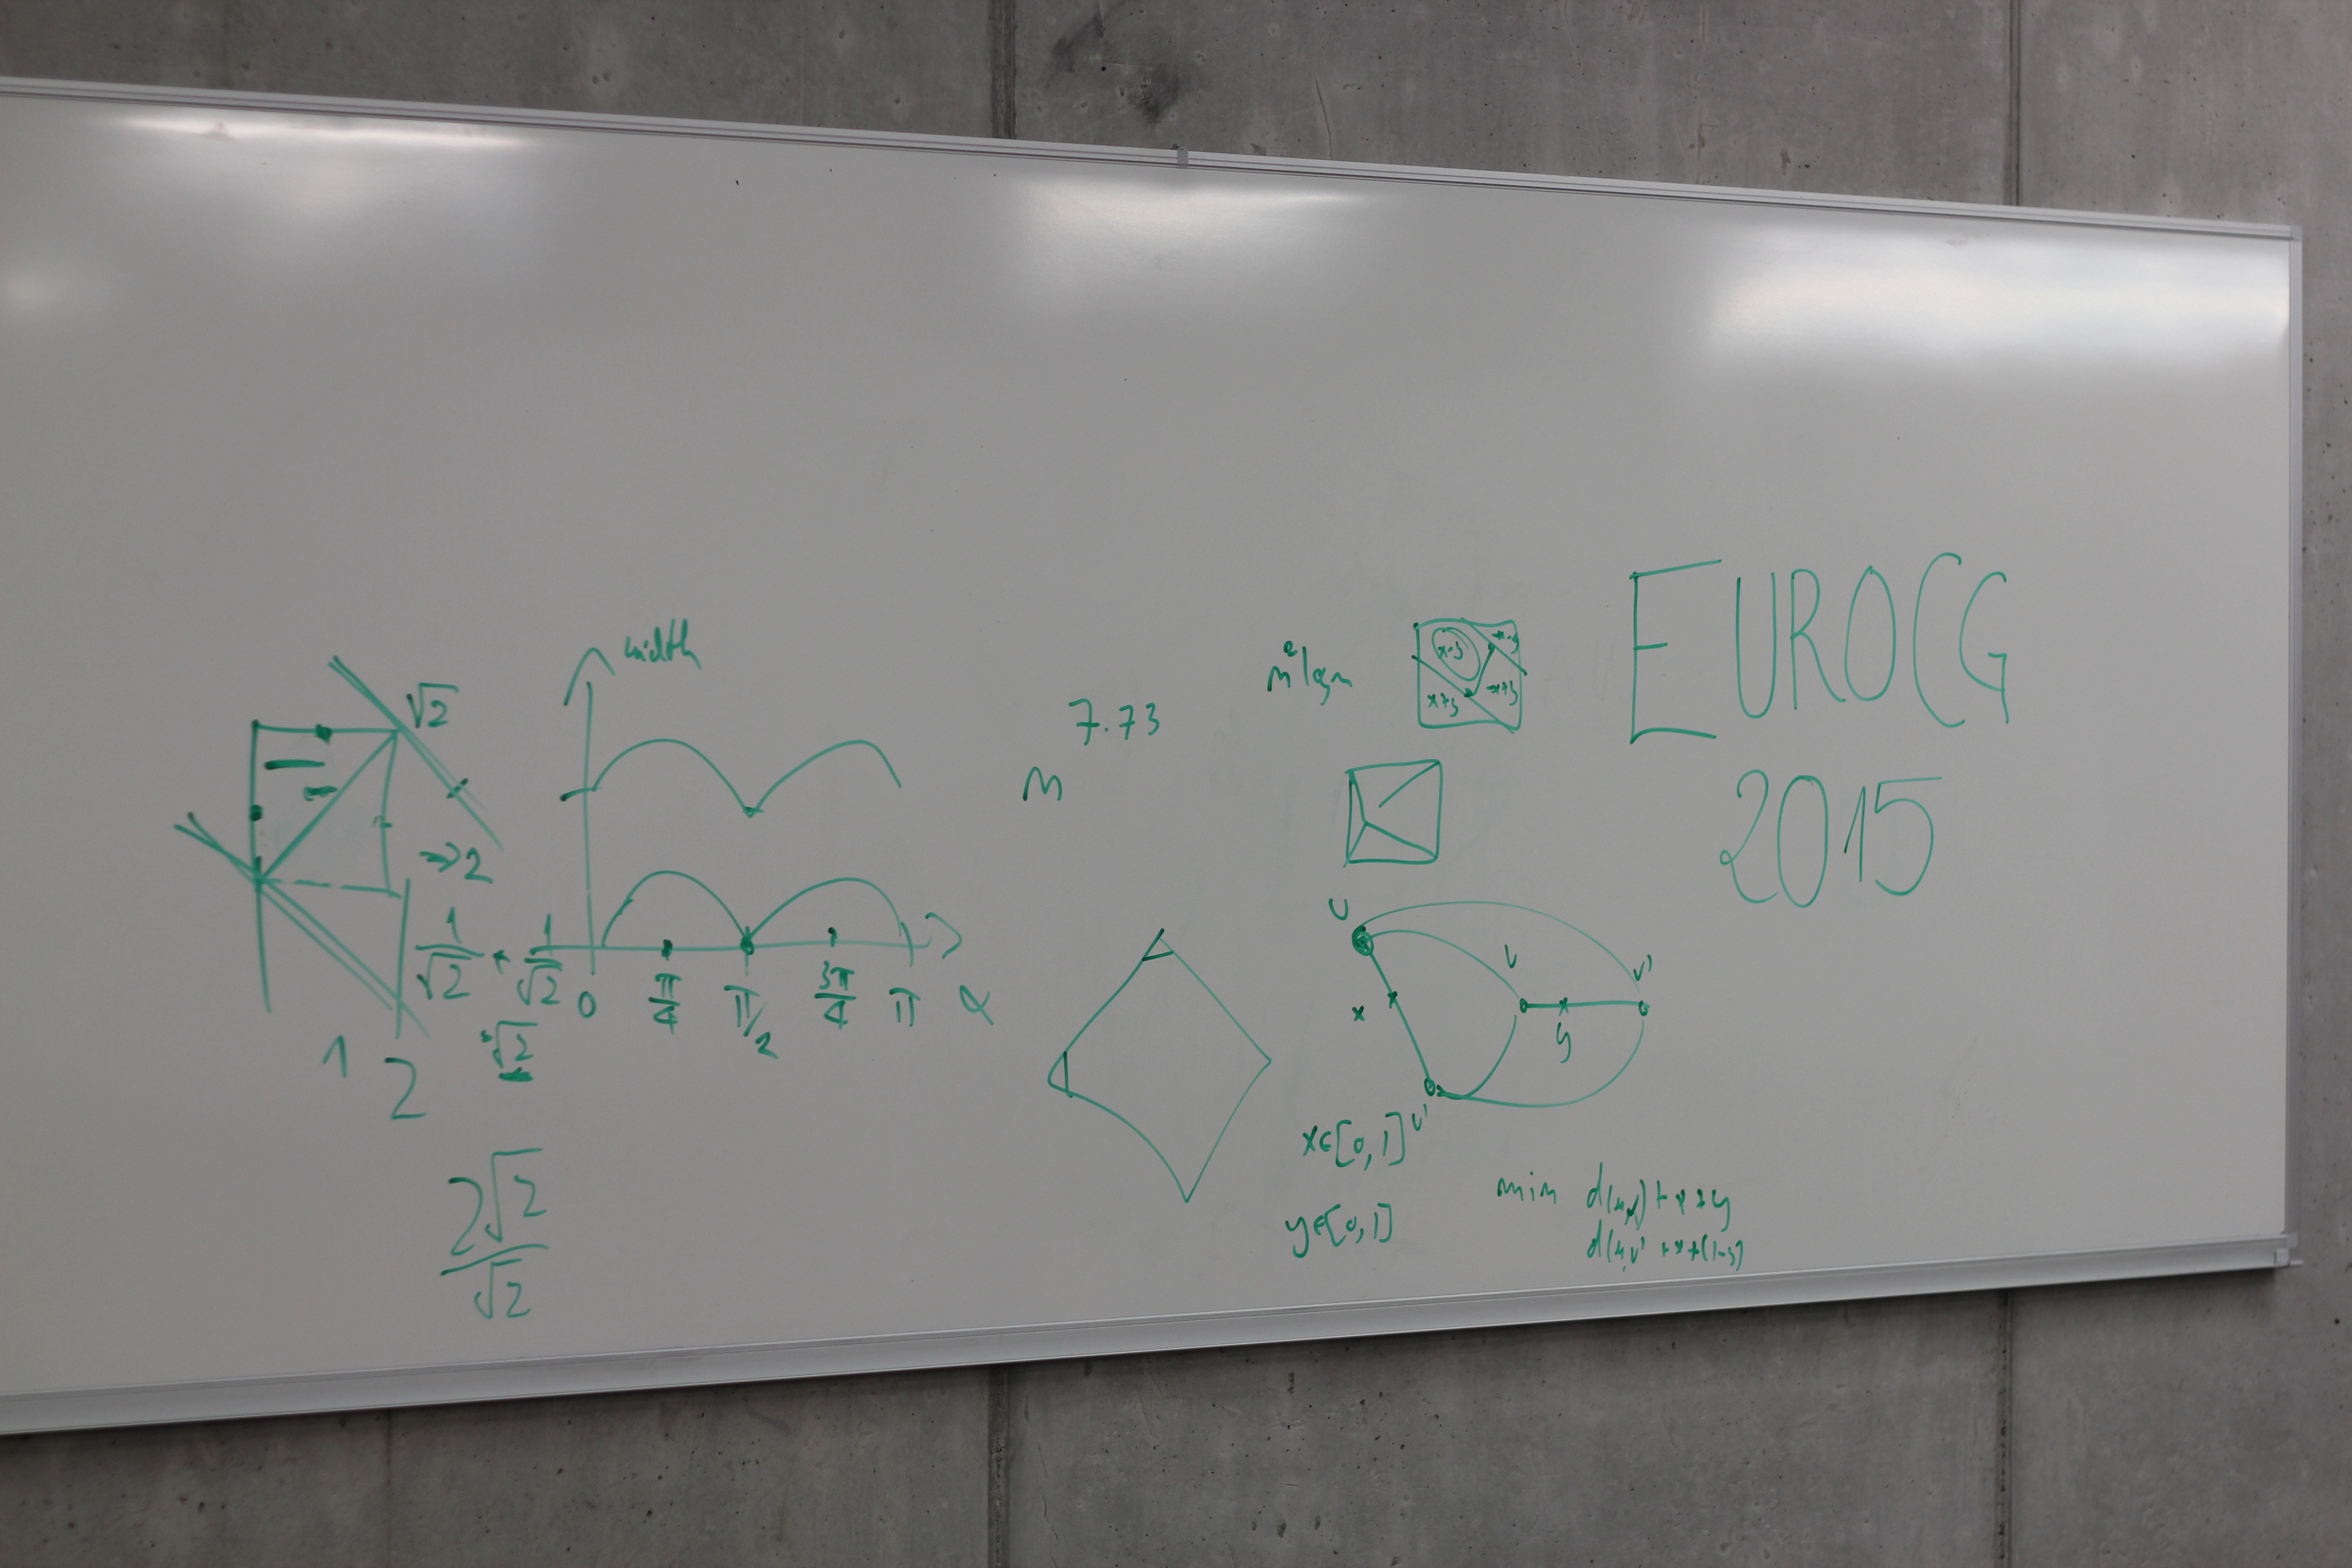 EUROCG
2015
width
√2
⇒2
1/√2 + 1/√2
√2
0 π/4 π/2 3π/4 π α
1 2
2√2/√2
n^7.73
n²logn
x-y
x+y
-x+y
u
v
v'
x
y
u'
x∈[0,1]
y∈[0,1]
min d(u,v)+x+y
d(u,v'+x+(1-y)